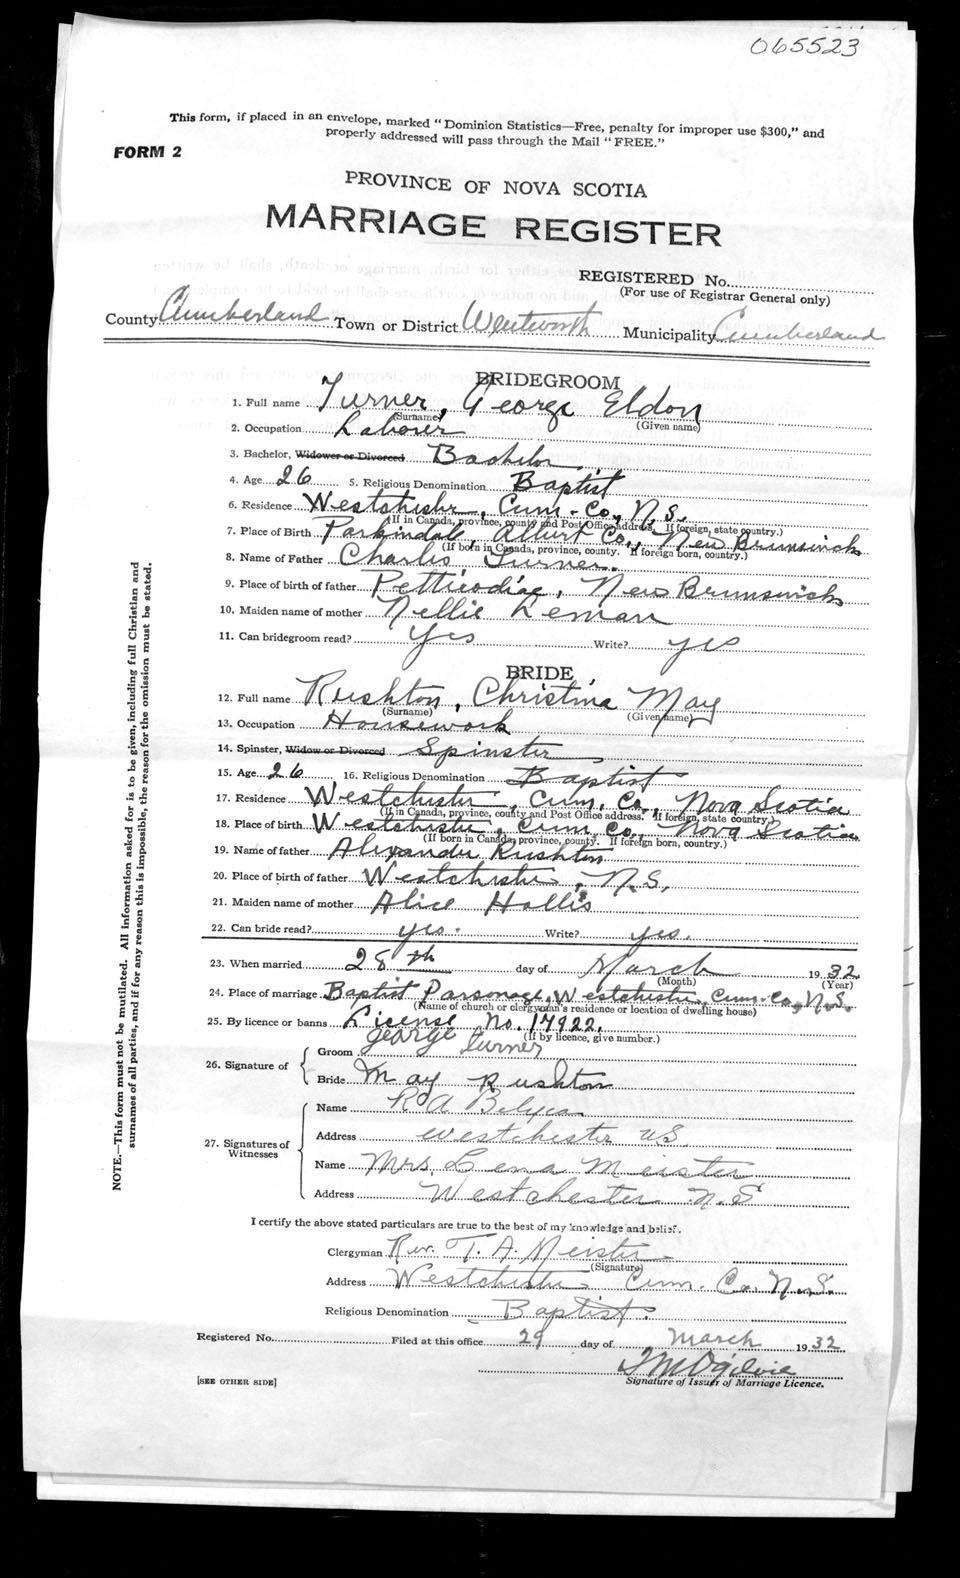 065523
This form, if placed in an envelope, marked "Dominion Statistics—Free, penalty for improper use $300," and
properly addressed will pass through the Mail "FREE."
FORM 2
PROVINCE OF NOVA SCOTIA
MARRIAGE REGISTER
REGISTERED No.
(For use of Registrar General only)
County Cumberland Town or District Wentworth Municipality Cumberland
BRIDEGROOM
1. Full name Turner, George Eldon
(Surname) (Given name)
2. Occupation Laborer
3. Bachelor, Widower or Divorced Bachelor
4. Age 26 5. Religious Denomination Baptist
6. Residence Westchester, Cum. Co., N.S.
(If in Canada, province, county and Post Office address. If foreign, state country.)
7. Place of Birth Parkindale, Albert Co., New Brunswick
(If born in Canada, province, county. If foreign born, country.)
8. Name of Father Charles Turner.
9. Place of birth of father Petticodiac, New Brunswick
10. Maiden name of mother Nellie Leman
11. Can bridegroom read? Yes Write? yes
BRIDE
12. Full name Rushton, Christina May
(Surname) (Given name)
13. Occupation Housework
14. Spinster, Widow or Divorced Spinster
15. Age 26, 16. Religious Denomination Baptist
17. Residence Westchester, Cum. Co., Nova Scotia
(If in Canada, province, county and Post Office address. If foreign, state country.)
18. Place of birth Westchester, Cum. Co., Nova Scotia
(If born in Canada, province, county. If foreign born, country.)
19. Name of father Alexander Rushton
20. Place of birth of father Westchester, N.S.
21. Maiden name of mother Alice Hollis
22. Can bride read? yes. Write? yes.
23. When married 28th day of March 1932
(Month) (Year)
24. Place of marriage Baptist Parsonage, Westchester, Cum. Co., N.S.
(Name of church or clergyman's residence or location of dwelling house)
25. By licence or banns License No. 17922.
(If by licence, give number.)
26. Signature of
Groom George Turner
Bride May Rushton
27. Signatures of
Witnesses
Name R A Belyea
Address Westchester NS
Name Mrs. Lena Meister
Address Westchester N.S
I certify the above stated particulars are true to the best of my knowledge and belief.
Clergyman Rev. T. A. Meister
(Signature)
Address Westchester Cum. Co. N.S.
Religious Denomination Baptist.
Registered No. Filed at this office 29 day of March 1932
Ogilvie
[SEE OTHER SIDE] Signature of Issuer of Marriage Licence.
NOTE.—This form must not be mutilated. All information asked for is to be given, including full Christian and
surnames of all parties, and if for any reason this is impossible, the reason for the omission must be stated.